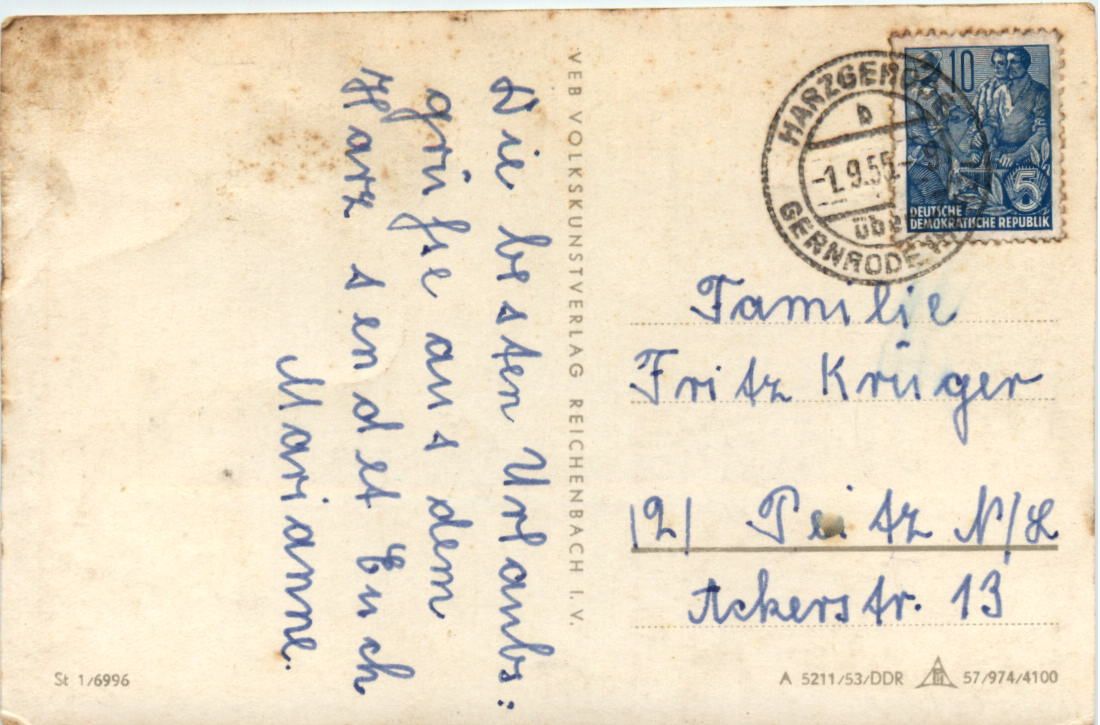 Die besten Urlaubs:
grüße aus dem
Harz sendet Euch
Marianne.
VEB VOLKSKUNSTVERLAG REICHENBACH I. V.
HARZGERODE
b
-1.9.55-9
über
GERNRODE
10
5
DEUTSCHE
DEMOKRATISCHE REPUBLIK
Familie
Fritz Krüger
(2) Peitz N/L
Ackerstr. 13
St 1/6996
A 5211/53/DDR 57/974/4100